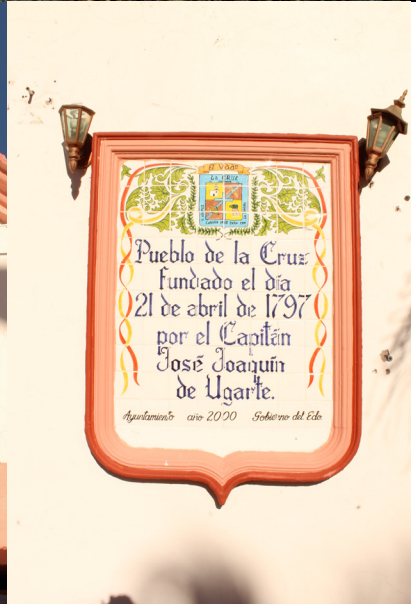 LA CRUZ
Pueblo de la Cruz
fundado el día
21 de abril de 1797
por el Capitán
José Joaquín
de Ugarte.
Ayuntamiento año 2000 Gobierno del Edo.